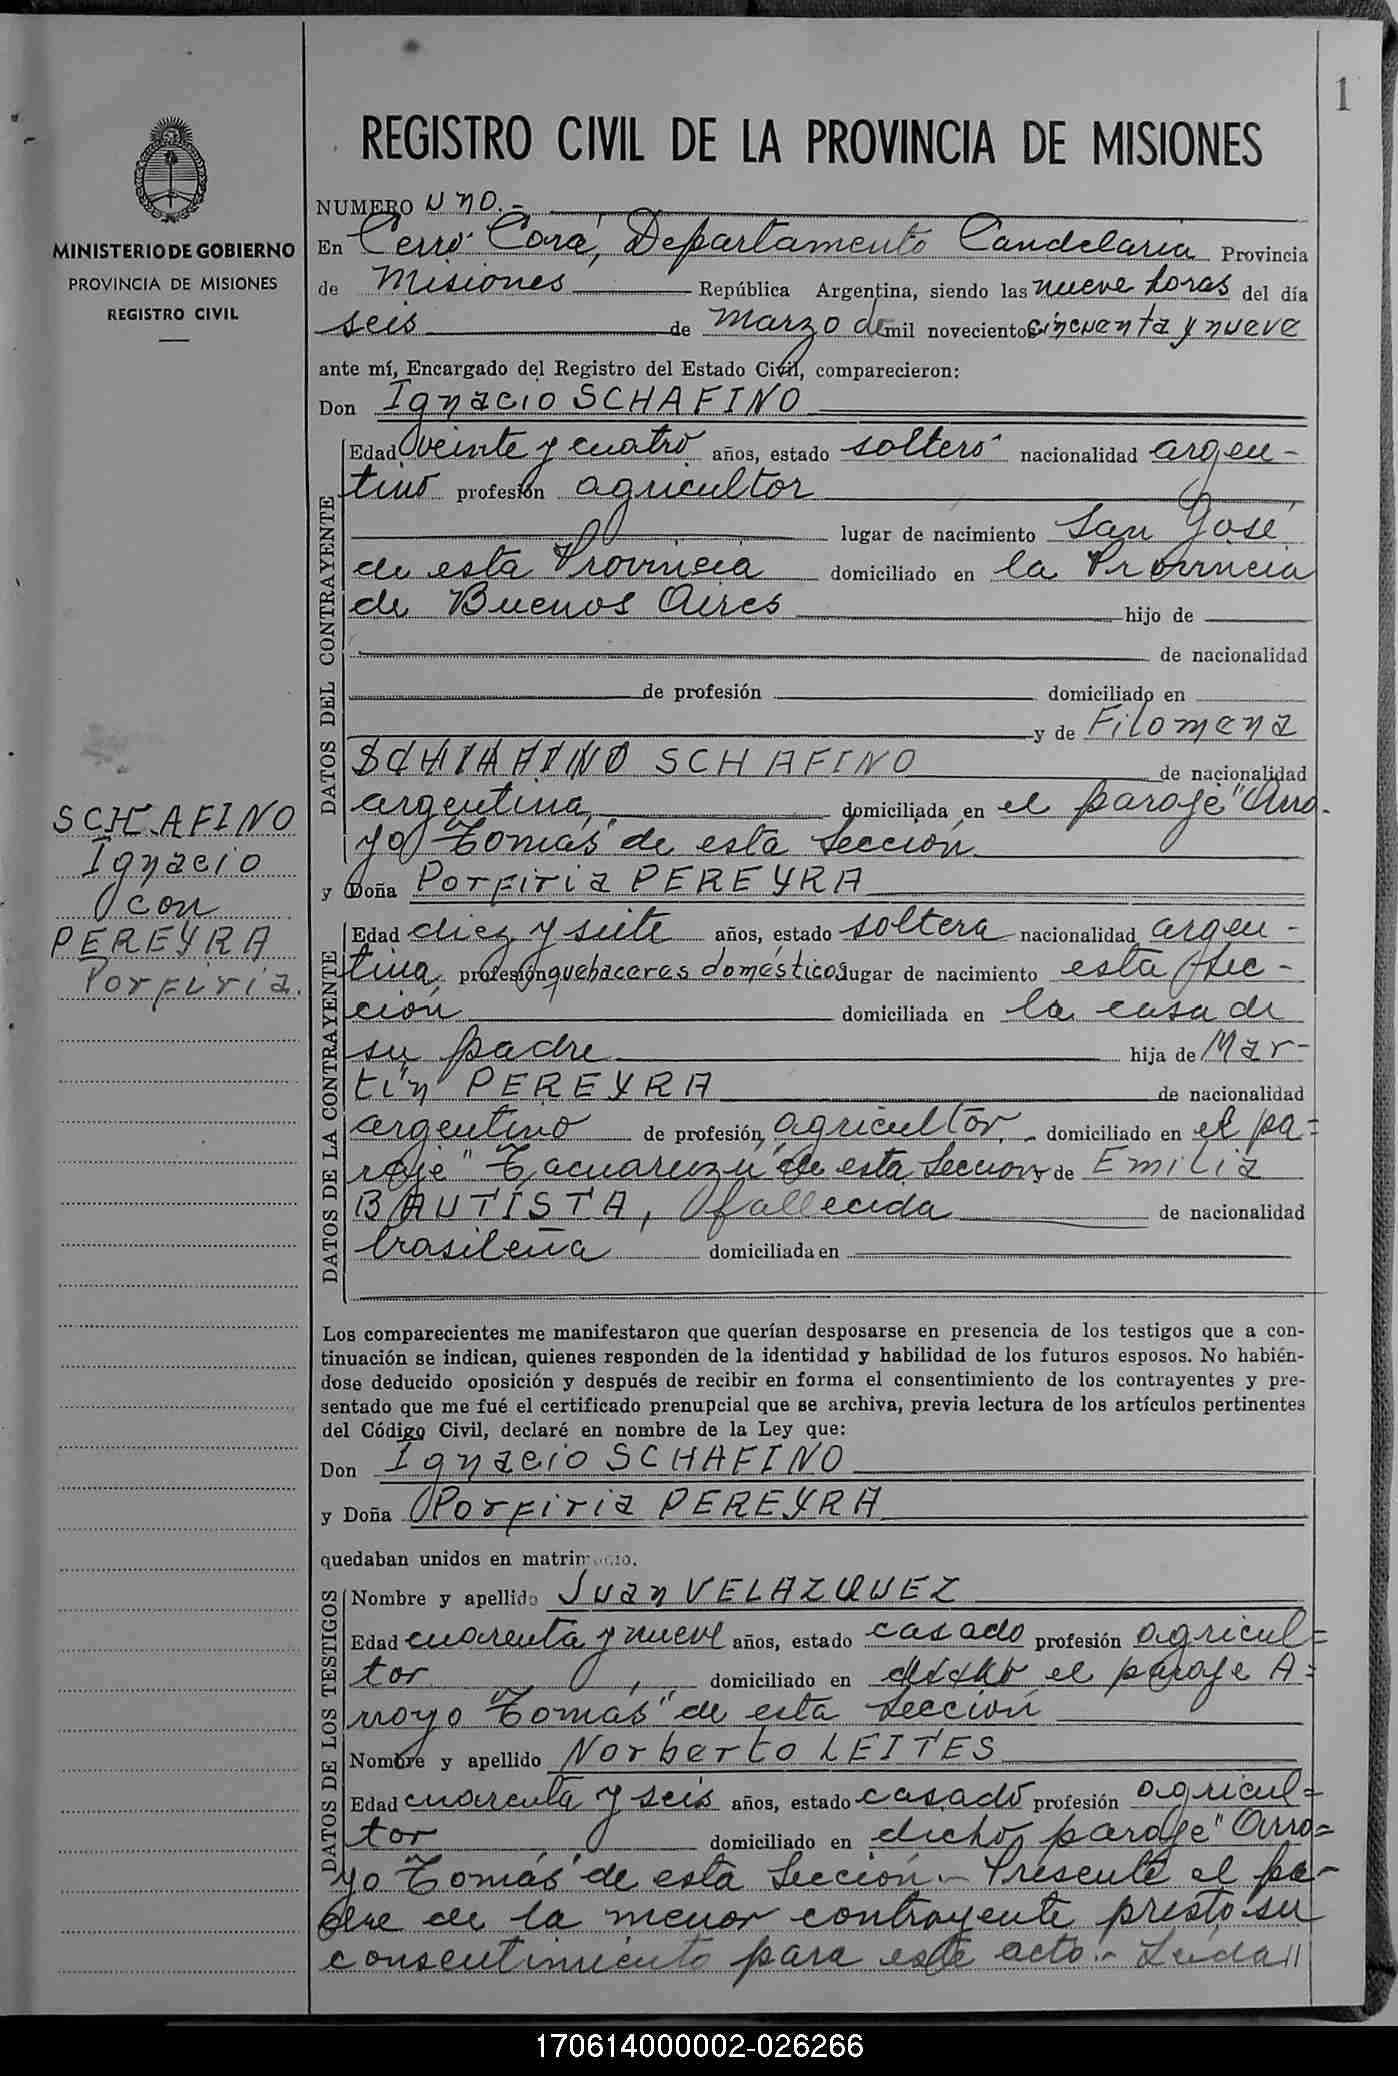 1
REGISTRO CIVIL DE LA PROVINCIA DE MISIONES
MINISTERIO DE GOBIERNO
PROVINCIA DE MISIONES
REGISTRO CIVIL
NUMERO uno.-
En Cerro Corá, Departamento Candelaria Provincia
de Misiones República Argentina, siendo las nueve horas del día
seis de marzo de mil novecientos cincuenta y nueve
ante mí, Encargado del Registro del Estado Civil, comparecieron:
Don Ignacio SCHAFINO
DATOS DEL CONTRAYENTE
Edad veinte y cuatro años, estado soltero nacionalidad argen-
tino profesión agricultor
lugar de nacimiento San José
de esta Provincia domiciliado en la Provincia
de Buenos Aires hijo de
de nacionalidad
de profesión domiciliado en
y de Filomena
SCHAFINO de nacionalidad
argentina, domiciliada en el paraje "Arro-
yo Tomás" de esta Sección
y Doña Porfiria PEREYRA
SCHAFINO
Ignacio
con
PEREYRA
Porfiria.
DATOS DE LA CONTRAYENTE
Edad diez y siete años, estado soltera nacionalidad argen-
tina, profesión quehaceres domésticos lugar de nacimiento esta Sec-
ción domiciliada en la casa de
su padre hija de Mar-
tín PEREYRA de nacionalidad
argentino de profesión agricultor, domiciliado en el pa=
raje "Tacuaruzú" de esta Sección y de Emilia
BAUTISTA, fallecida de nacionalidad
brasileña domiciliada en
Los comparecientes me manifestaron que querían desposarse en presencia de los testigos que a con-
tinuación se indican, quienes responden de la identidad y habilidad de los futuros esposos. No habién-
dose deducido oposición y después de recibir en forma el consentimiento de los contrayentes y pre-
sentado que me fué el certificado prenupcial que se archiva, previa lectura de los artículos pertinentes
del Código Civil, declaré en nombre de la Ley que:
Don Ignacio SCHAFINO
y Doña Porfiria PEREYRA
quedaban unidos en matrimonio.
DATOS DE LOS TESTIGOS
Nombre y apellido Juan VELAZQUEZ
Edad cuarenta y nueve años, estado casado profesión agricul=
tor, domiciliado en el paraje A=
rroyo Tomás" de esta Sección
Nombre y apellido Norberto LEITES
Edad cuarenta y seis años, estado casado profesión agricul=
tor domiciliado en dicho paraje "Arro=
yo Tomás" de esta Sección.- Presente el pa-
dre de la menor contrayente prestó su
consentimiento para este acto.- Leída //
170614000002-026266